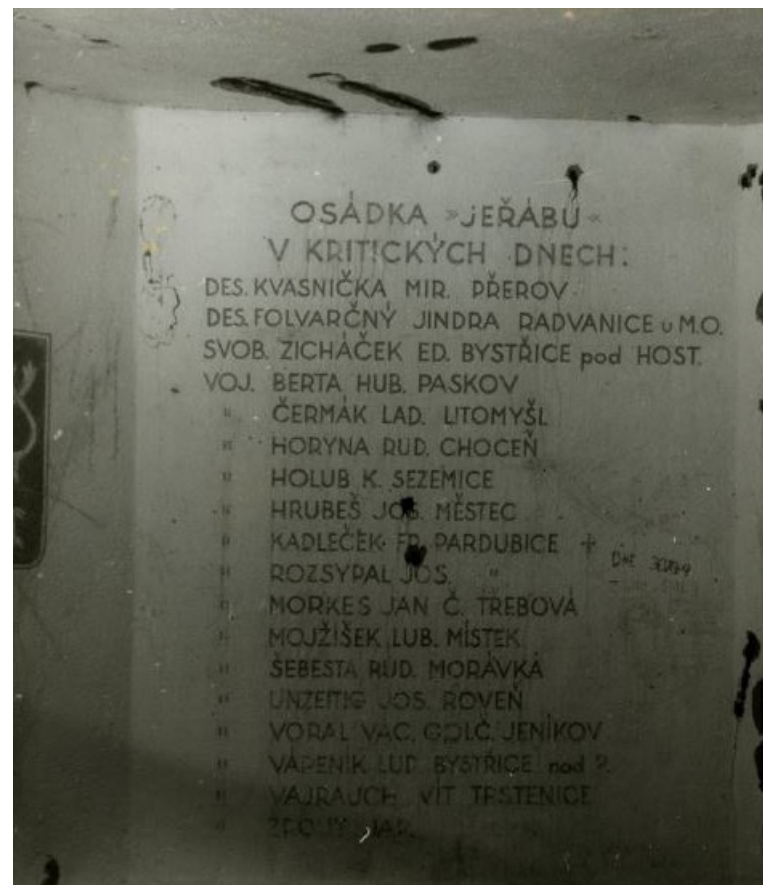 OSÁDKA »JEŘÁBU«
V KRITICKÝCH DNECH:
DES. KVASNIČKA MIR. PŘEROV
DES. FOLVARČNÝ JINDRA RADVANICE u M.O.
SVOB. ŽICHÁČEK ED. BYSTŘICE pod HOST.
VOJ. BERTA HUB. PASKOV
" ČERMÁK LAD. LITOMYŠL
" HORYNA RUD. CHOCEŇ
" HOLUB K. SEZEMICE
" HRUBEŠ JOS. MĚSTEC
" KADLEČEK FR. PARDUBICE +
" ROZSYPAL JOS. "
" MORKES JAN Č. TŘEBOVÁ
" MOJŽÍŠEK LUB. MÍSTEK
" ŠEBESTA RUD. MORÁVKA
" UNZEITIG JOS. ROVEŇ
" VORAL VÁC. GOLČ. JENÍKOV
" VÁPENÍK LUD. BYSTŘICE nad P.
" VAJRAUCH VÍT TRSTENICE
" JAR.